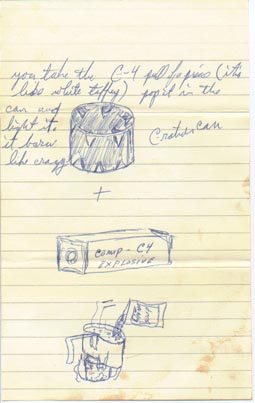 you take the C-4 pull of a piece (it's
like white taffey) pop it in the
can and
light it.
it burns
like crazy
Cration can
+
comp-C4
EXPLOSIVE